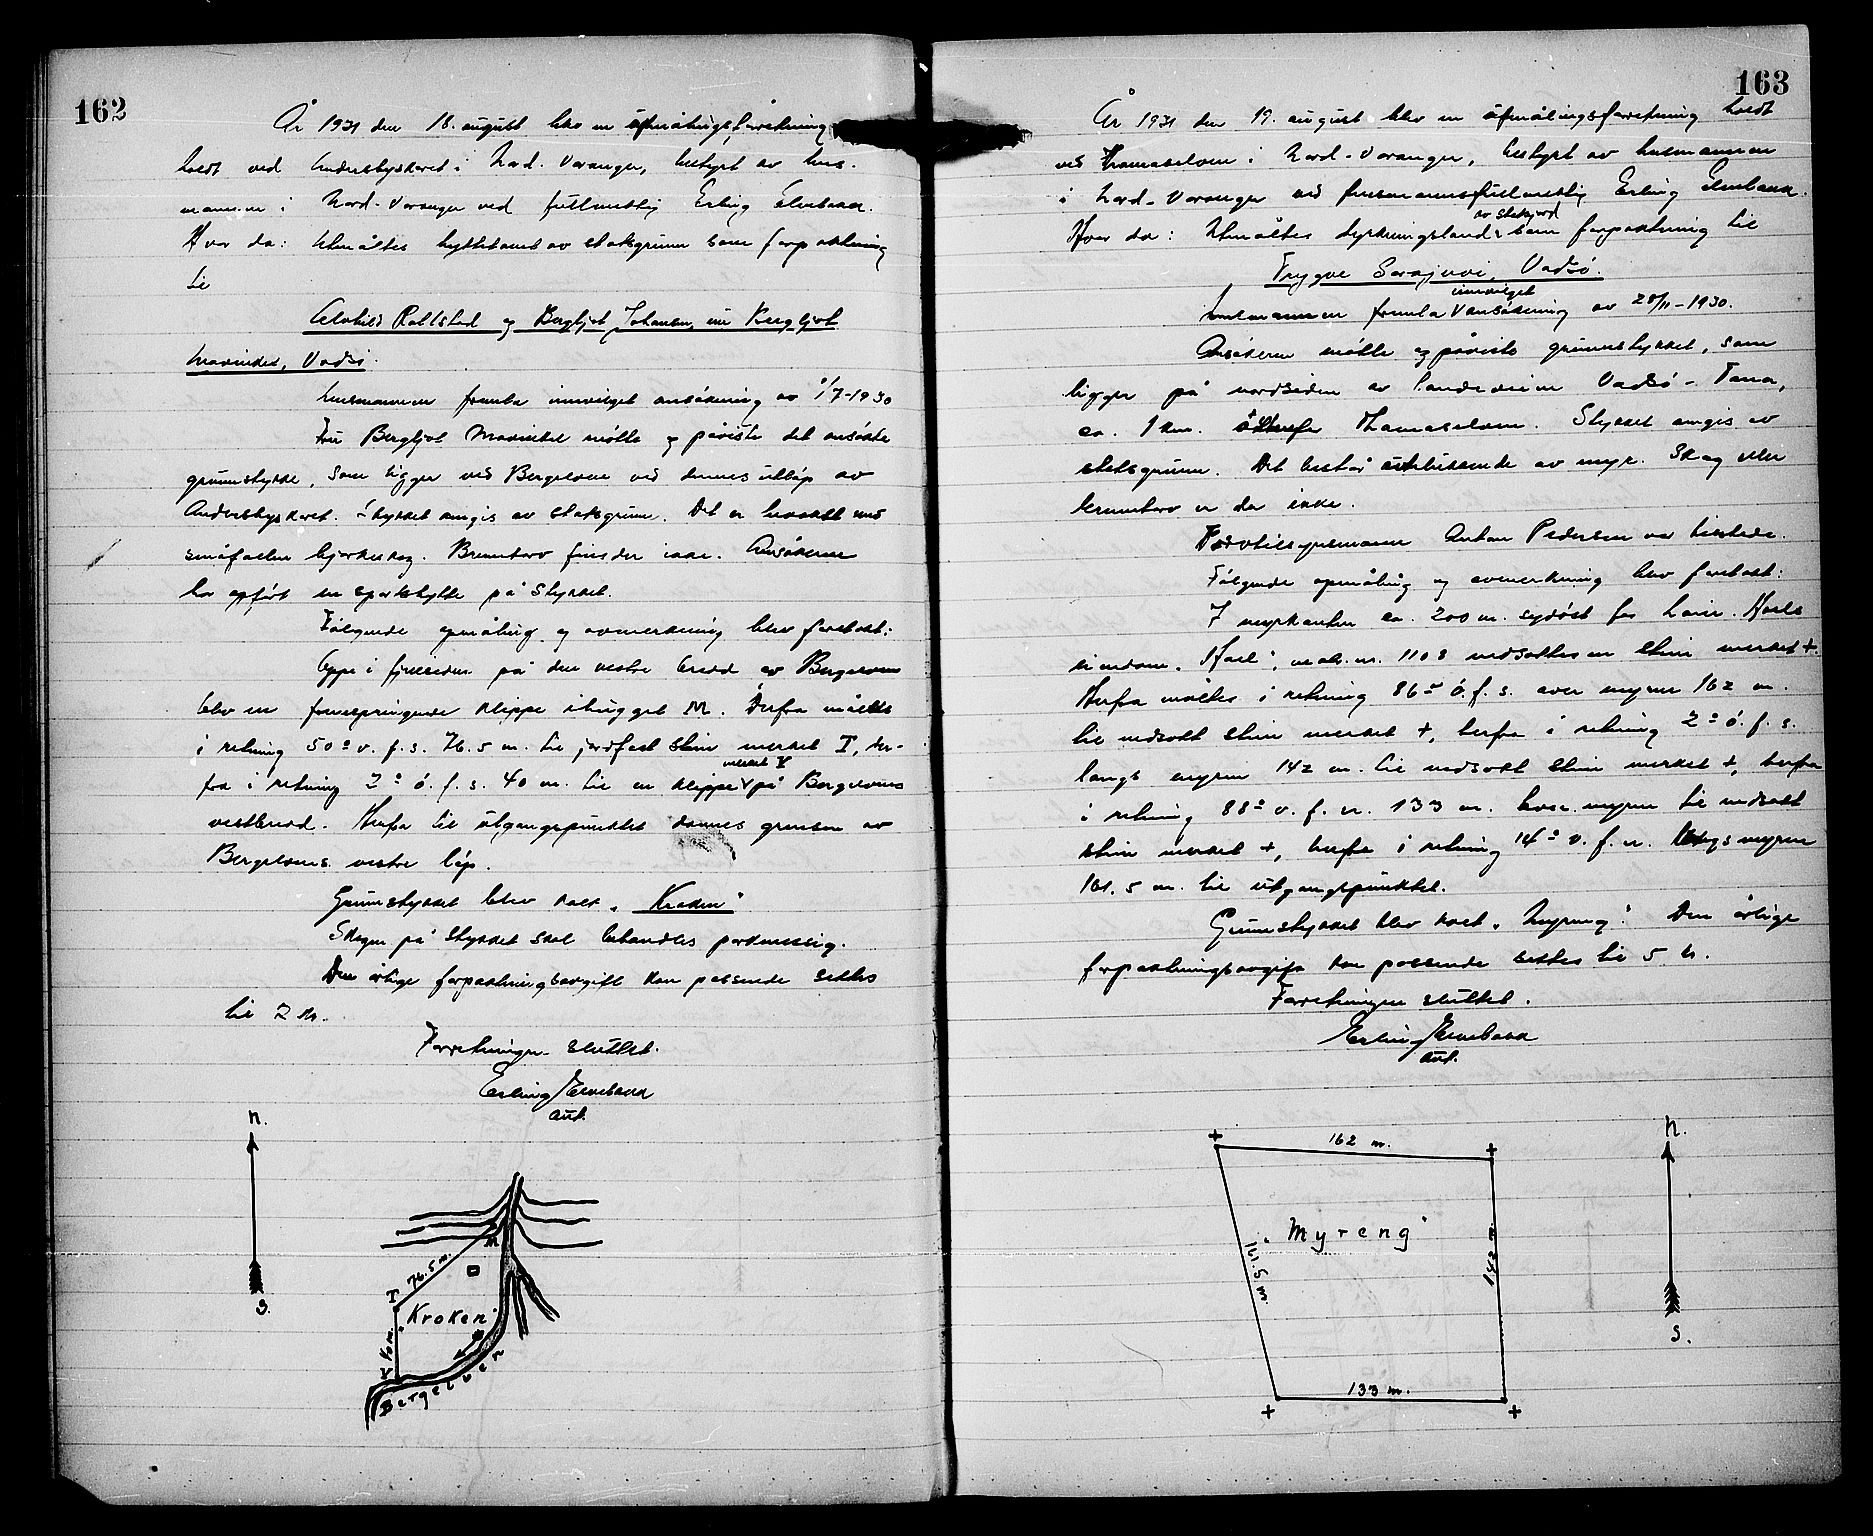 162
År 1931 den 18. august blev en opmålingsforretning
holdt ved Andersbyskaret i Nord-Varanger, bestyrt av lens-
mannen i Nord-Varanger ved fullmektig Erling Elvebakk.
Hvor da: Utmåltes hyttetomt av statsgrunn som forpaktning
til
Alvhild Rollstad og Bergljot Johansen, nu Bergljot
Mavinkel, Vadsø.
Lensmannen fremla innvilget ansøkning av 1/7-1930
Fru Bergljot Mavinkel møtte og påviste det ansøkte
grunnstykke, som ligger ved Bergelven ved dennes utløp av
Andersbyskaret. Stykket omgis av statsgrunn. Det er bevokset med
småfallen bjerkeskog. Brenntorv finnes der ikke. Ansøkerne
har opført en sportshytte på stykket.
Følgende opmåling og avmerkning blev foretatt:
Oppe i fjellsiden på den vestre bredd av Bergelven
blev en fremspringende klippe ihugget M. Derfra måltes
i retning 50° v. f. s. 76.5 m. til jordfast sten merket T, der-
fra i retning 2° ø. f. s. 40 m. til en klippe merket V på Bergelvens
vestbredd. Herfra til utgangspunktet dannes grensen av
Bergelvens vestre løp.
Grunnstykket blev kalt „Kroken"
Skogen på stykket skal behandles parkmessig.
Den årlige forpaktningsavgift kan passende settes
til 2 kr.
Forretningen sluttet.
Erling Elvebakk
aut.
N.
S.
M
76.5 m.
T
„Kroken"
40 m.
V
Bergelven
163
År 1931 den 19. august blev en opmålingsforretning holdt
ved Thomaselven i Nord-Varanger, bestyrt av lensmannen
i Nord-Varanger ved lensmannsfullmektig Erling Elvebakk.
Hvor da: Utmåltes dyrkningsland av statsjord som forpaktning til
Trygve Sarajuvi, Vadsø.
Lensmannen fremla innvilget ansøkning av 28/11-1930.
Ansøkeren møtte og påviste grunnstykket, som
ligger på nordsiden av landeveien Vadsø - Tana,
ca. 1 km. Thomaselven. Stykket omgis av
statsgrunn. Det består utelukkende av myr. Skog eller
brenntorv er der ikke.
Anton Pedersen var tilstede.
Følgende opmåling og avmerkning blev foretatt:
I myrkanten ca. 200 m. sydøst for
eiendom, m.nr. 1108 nedsattes en sten merket +.
Herfra måltes i retning 86° ø. f. s. over myren 162 m.
til nedsatt sten merket +, herfra i retning 2° ø. f. s.
langs myren 142 m. til nedsatt sten merket +, herfra
i retning 88° v. f. n. 133 m. over myren til nedsatt
sten merket +, herfra i retning 14° v. f. n. langs myren
161.5 m. til utgangspunktet.
Grunnstykket blev kalt „Myreng". Den årlige
forpaktningsavgift kan passende settes til 5 kr.
Forretningen sluttet.
Erling Elvebakk
aut.
N.
S.
162 m.
„Myreng"
161.5 m.
142 m.
133 m.